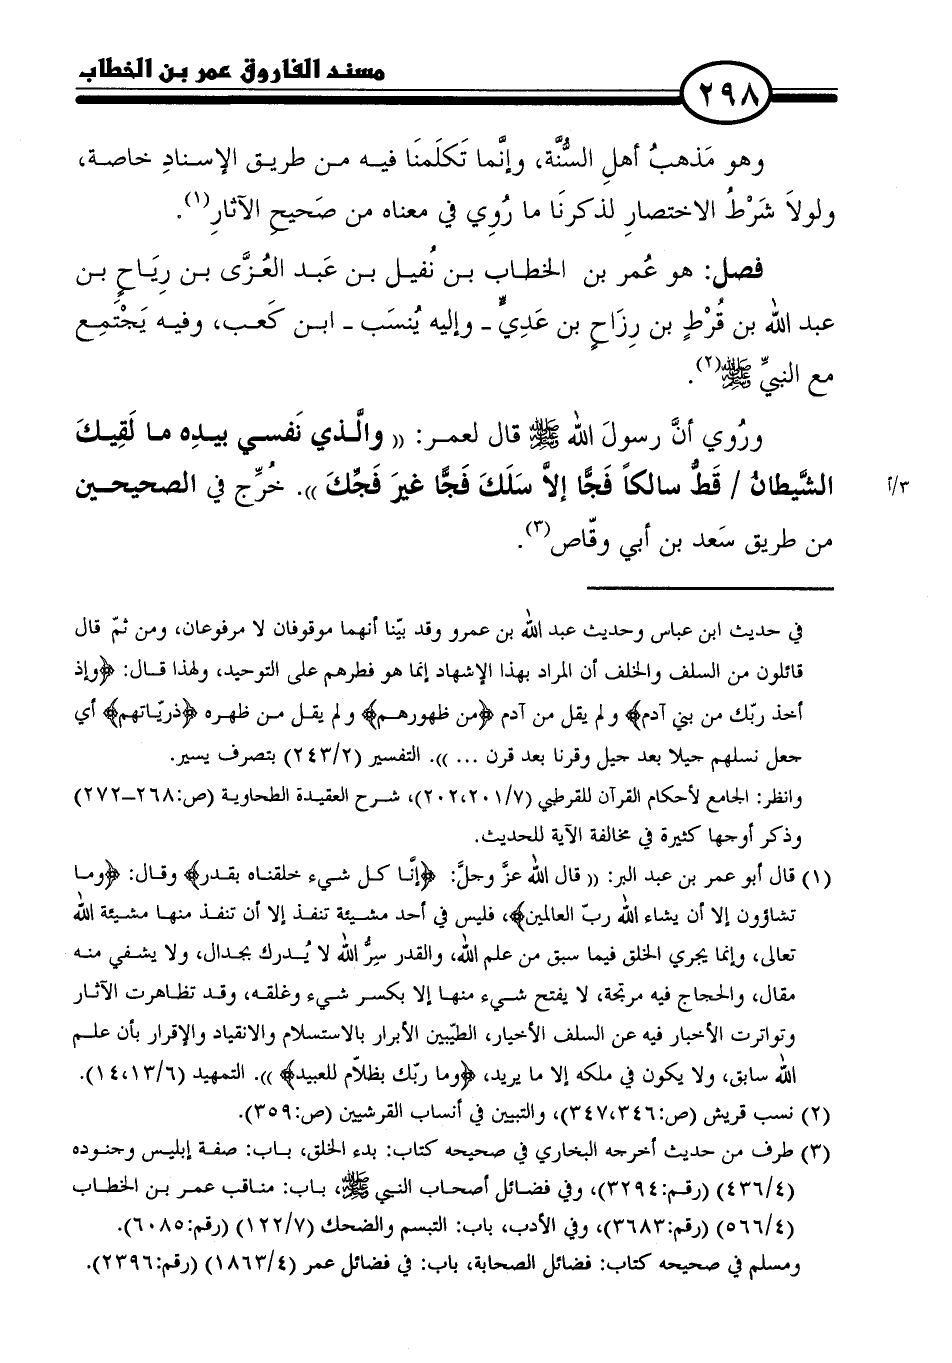 مسند الفاروق عمر بن الخطاب
٢٩٨
وهو مَذهبُ أهلِ السُّنَّة، وإنَّما تَكلَمنَا فيه من طريق الإسنادِ خاصة،
ولولاَ شَرْطُ الاختصارِ لذكرنَا ما رُوي في معناه من صَحيحِ الآثارِ(١).
فصل: هو عُمر بن الخطاب بن نُفيل بن عَبد العُزَّى بن رِيَاحٍ بن
عبد الله بن قُرْطٍ بن رِزَاحٍ بن عَديٍّ ـ وإليه يُنسَب ـ ابن كَعب، وفيه يَجْتَمِع
مع النبيِّ ﷺ(٢).
ورُوي أنَّ رسولَ الله ﷺ قال لعمر: (( والَّذي نَفسي بيدِه ما لَقِيكَ
الشَّيطانُ / قَطُّ سالكاً فَجًّا إلاَّ سَلَكَ فَجًّا غيرَ فَجِّكَ )). خُرِّج في الصحيحين
٣/أ
من طريق سَعد بن أبي وقّاص(٣).
في حديث ابن عباس وحديث عبد الله بن عمرو وقد بيّنا أنهما موقوفان لا مرفوعان، ومن ثمّ قال
قائلون من السلف والخلف أن المراد بهذا الإشهاد إنما هو فطرهم على التوحيد، ولهذا قال: ﴿وإذ
أخذ ربّك من بني آدم﴾ ولم يقل من آدم ﴿من ظهورهم﴾ ولم يقل من ظهره ﴿ذريّاتهم﴾ أي
جعل نسلهم جيلا بعد جيل وقرنا بعد قرن ... )). التفسير (٢٤٣/٢) بتصرف يسير.
وانظر: الجامع لأحكام القرآن للقرطبي (٢٠٢،٢٠١/٧)، شرح العقيدة الطحاوية (ص:٢٦٨-٢٧٢)
وذكر أوجها كثيرة في مخالفة الآية للحديث.
(١) قال أبو عمر بن عبد البر: (( قال الله عزَّ وجلَّ: ﴿إنَّا كل شيء خلقناه بقدر﴾ وقال: ﴿وما
تشاؤون إلا أن يشاء الله ربّ العالمين﴾، فليس في أحد مشيئة تنفذ إلا أن تنفذ منها مشيئة الله
تعالى، وإنما يجري الخلق فيما سبق من علم الله، والقدر سِرُّ الله لا يُدرك بجدال، ولا يشفي منه
مقال، والحجاج فيه مرتجة، لا يفتح شيء منها إلا بكسر شيء وغلقه، وقد تظاهرت الآثار
وتواترت الأخبار فيه عن السلف الأخيار، الطيّبين الأبرار بالاستسلام والانقياد والإقرار بأن علم
الله سابق، ولا يكون في ملكه إلا ما يريد، ﴿وما ربّك بظلاّم للعبيد﴾ )). التمهيد (١٤،١٣/٦).
(٢) نسب قريش (ص:٣٤٧،٣٤٦)، والتبيين في أنساب القرشيين (ص:٣٥٩).
(٣) طرف من حديث أخرجه البخاري في صحيحه كتاب: بدء الخلق، باب: صفة إبليس وجنوده
(٤٣٦/٤) (رقم:٣٢٩٤)، وفي فضائل أصحاب النبي ﷺ، باب: مناقب عمر بن الخطاب
(٥٦٦/٤) (رقم:٣٦٨٣)، وفي الأدب، باب: التبسم والضحك (١٢٢/٧) (رقم:٦٠٨٥).
ومسلم في صحيحه كتاب: فضائل الصحابة، باب: في فضائل عمر (١٨٦٣/٤) (رقم:٢٣٩٦).